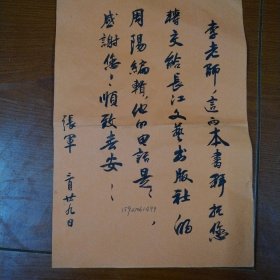 李老師，這兩本書拜托您
轉交給長江文藝出版社的
周陽編輯，他的電話是：
感謝您！順致春安！
張軍
二月廿九日